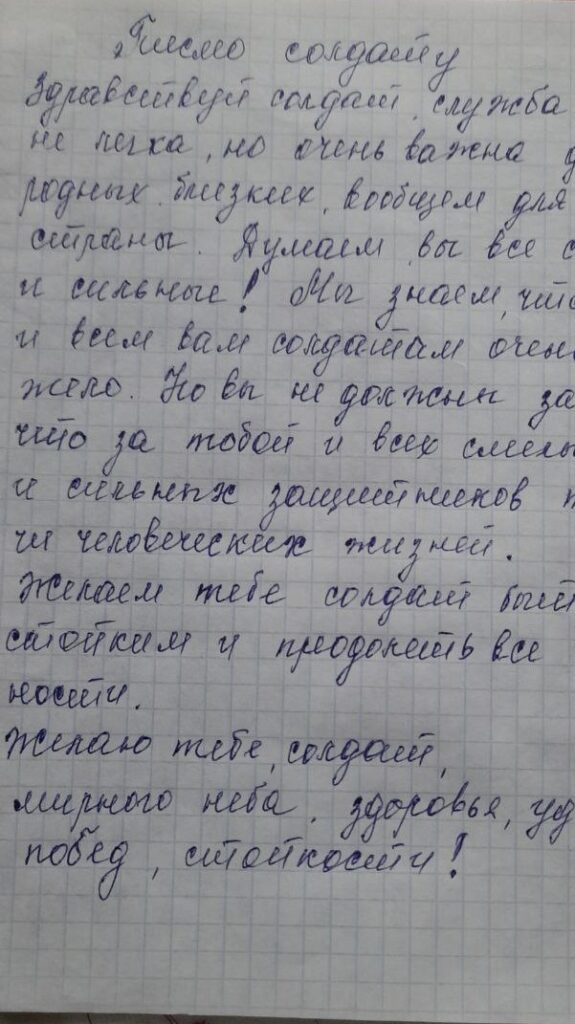 Письмо солдату
Здравствуй солдат, служба
не легка, но очень важна д
родных. близких, вообщем для
страны. Думаем, вы все с
и сильные! Мы знаем, что
и всем вам солдатам очен
жело. Но вы не должны за
что за тобой и всех смелы
и сильных защитников т
чи человеческих жизней.
Желаем тебе солдат быт
стойким и преодолеть все
ности.
Желаю тебе, солдат,
мирного неба, здоровья, уд
побед, стойкости!